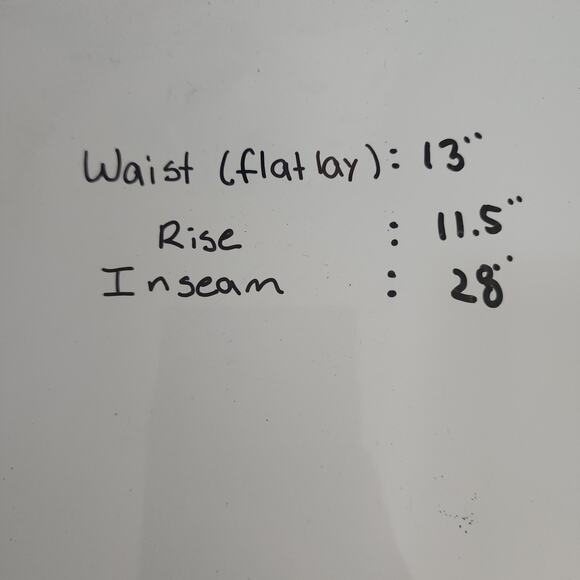 Waist (flat lay): 13"
Rise : 11.5"
Inseam : 28"